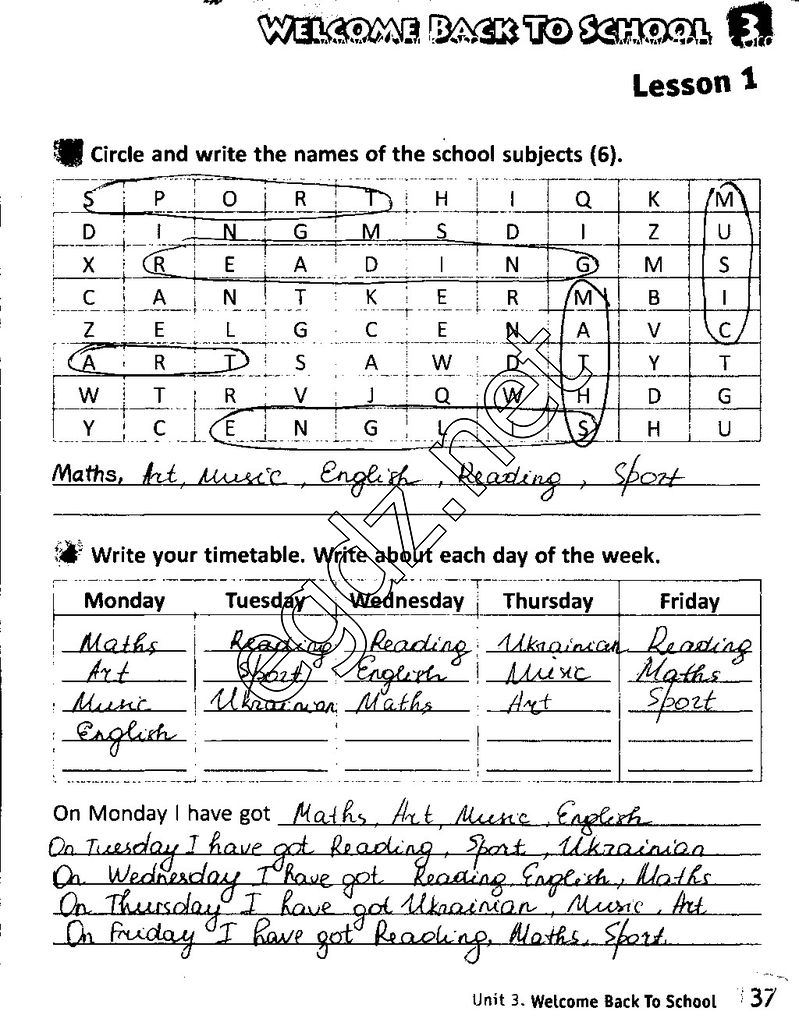 WELCOME BACK TO SCHOOL 3
Lesson 1
Circle and write the names of the school subjects (6).
S P O R T H I Q K M
D I N G M S D I Z U
X R E A D I N G M S
C A N T K E R M B I
Z E L G C E N A V C
A R T S A W D T Y T
W T R V J Q W H D G
Y C E N G L I S H U
Maths, Art, Music, English, Reading, Sport
Write your timetable. Write about each day of the week.
Monday Tuesday Wednesday Thursday Friday
Maths Reading Reading Ukrainian Reading
Art Sport English Music Maths
Music Ukrainian Maths Art Sport
English
On Monday I have got Maths, Art, Music, English
On Tuesday I have got Reading, Sport, Ukrainian
On Wednesday I have got Reading, English, Maths
On Thursday I have got Ukrainian, Music, Art
On Friday I have got Reading, Maths, Sport
Unit 3. Welcome Back To School 37
egdz.net